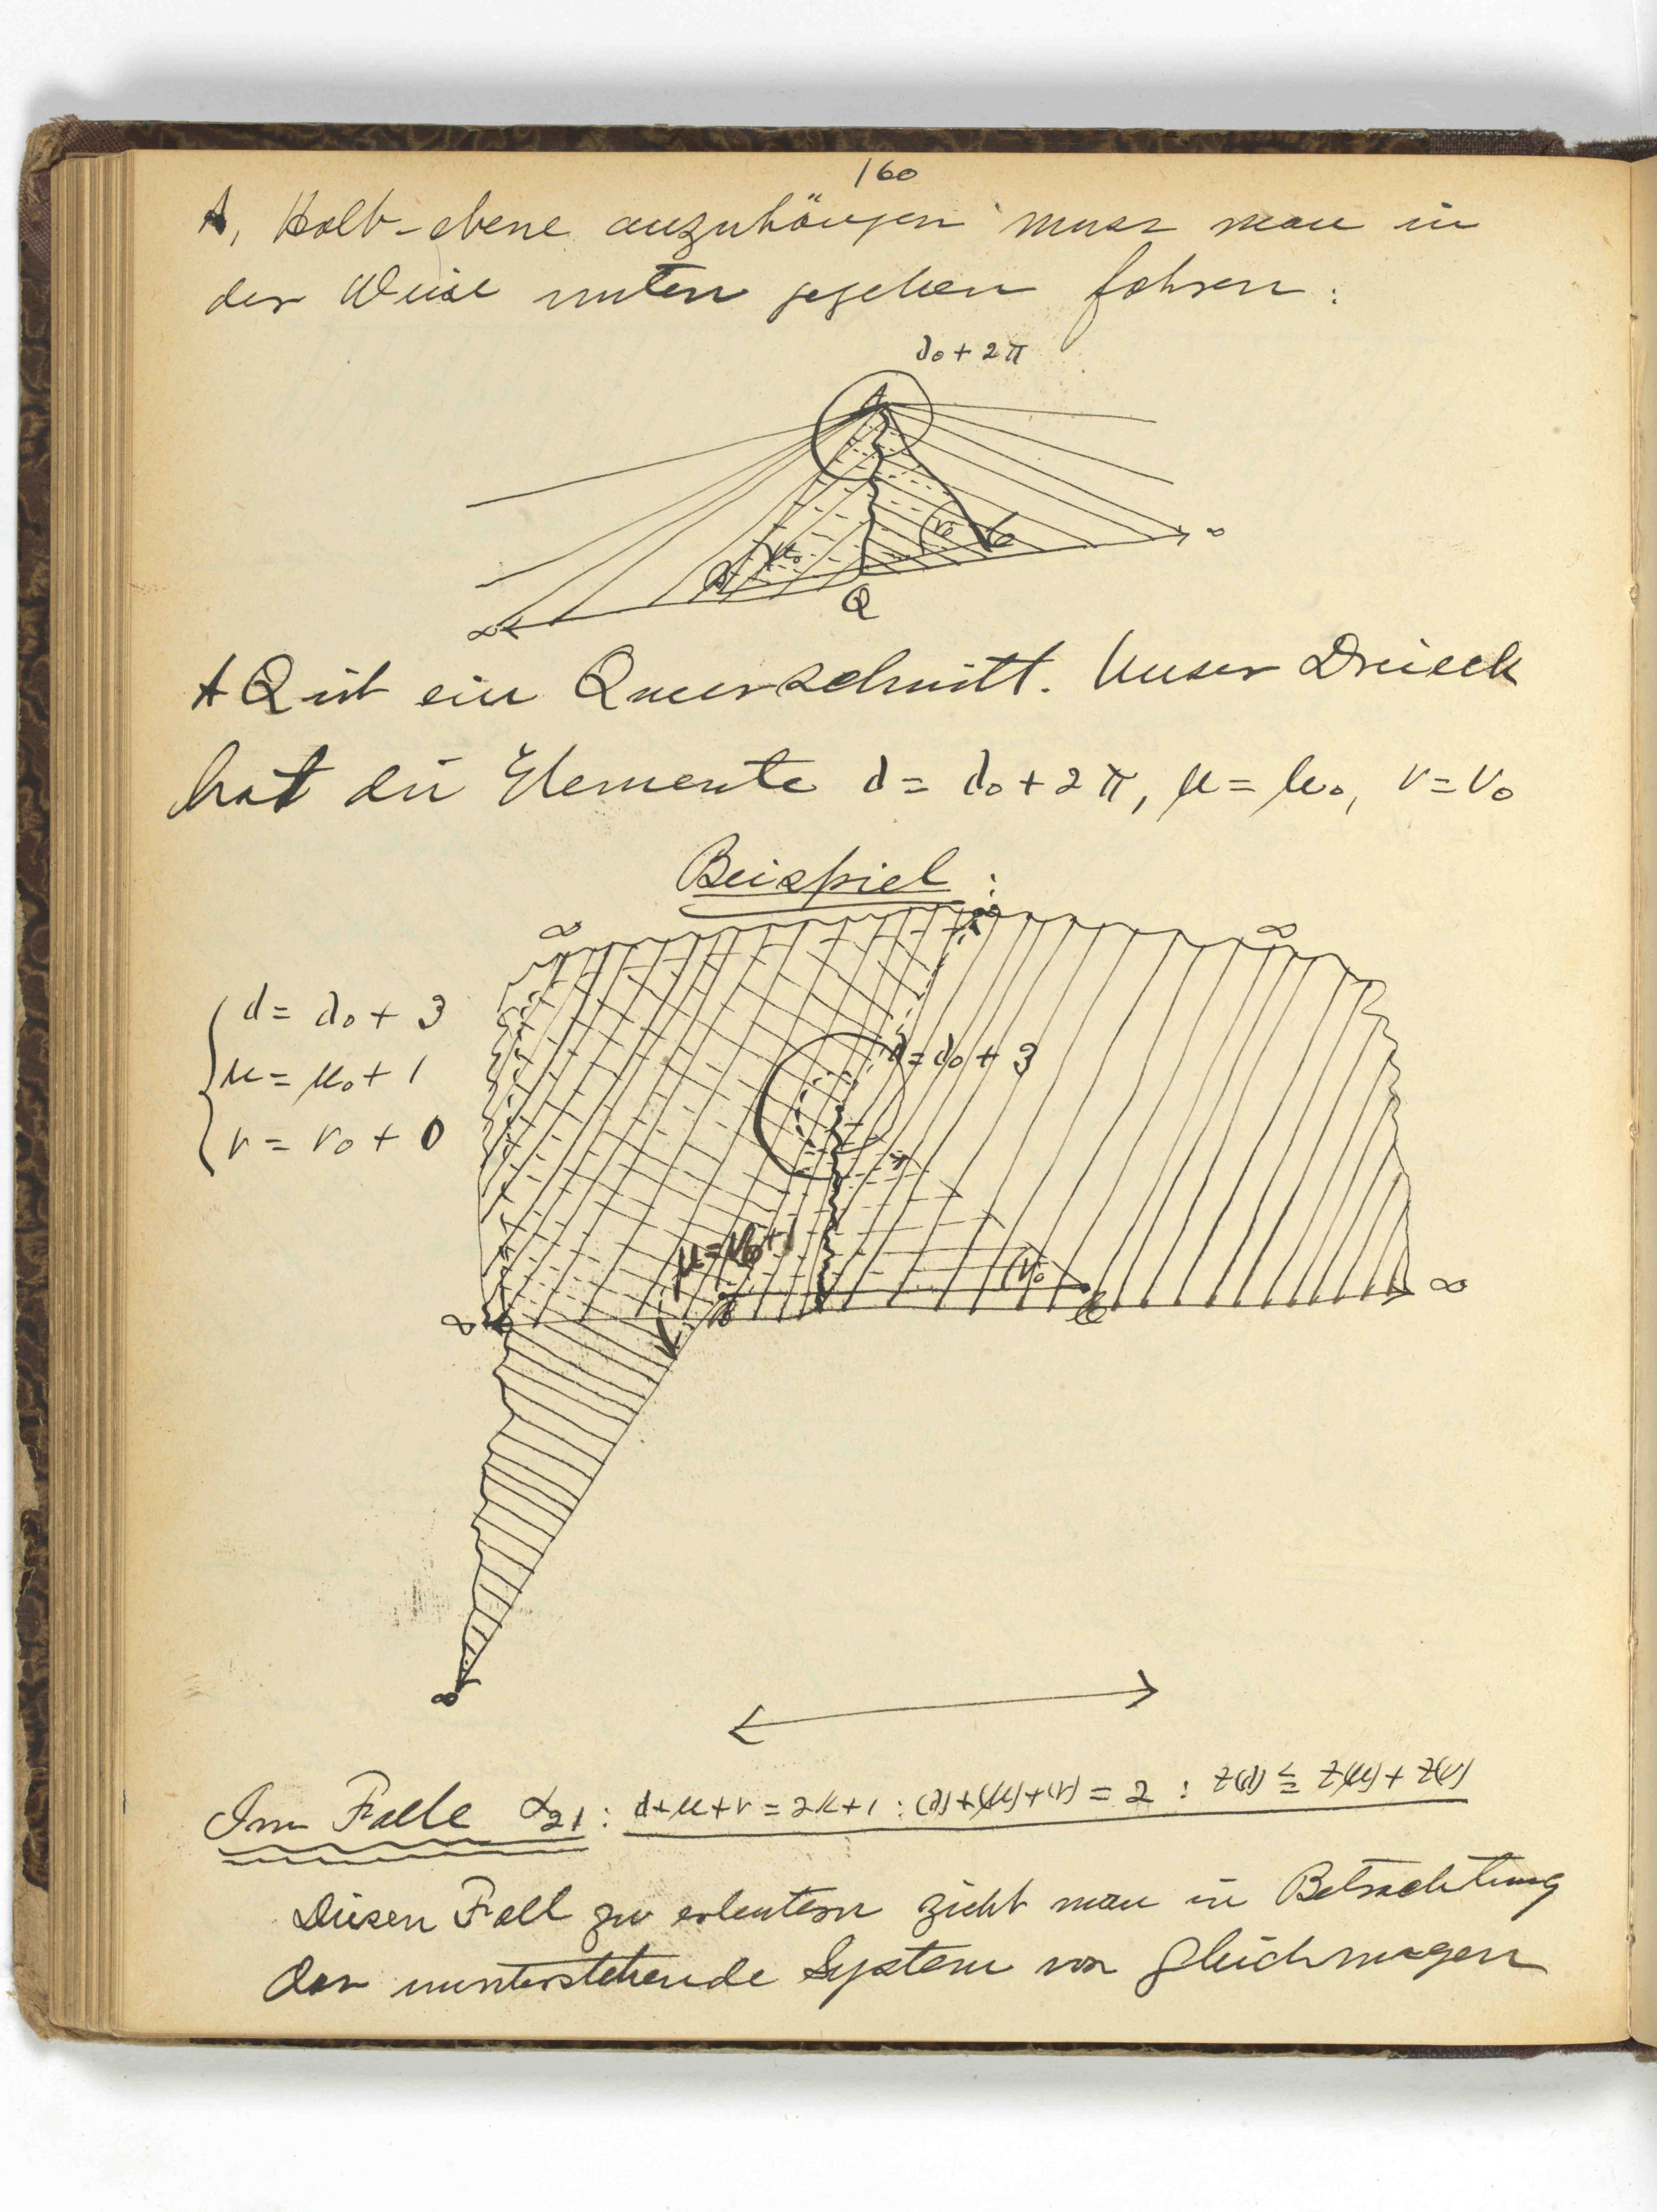 160
A, Halb-ebene anzuhängen muss man in
der Weise unten gegeben fahren:
λ₀ + 2π
A
∞
μ₀
ν₀
B
C
Q
∞
AQ ist ein Querschnitt. Unser Dreieck
hat die Elemente λ = λ₀ + 2π, μ = μ₀, ν = ν₀
Beispiel:
∞
∞
∞
λ = λ₀ + 3
μ = μ₀ + 1
ν = ν₀ + 0
λ = λ₀ + 3
μ = μ₀ + 1
ν₀
∞
B
C
∞
∞
Im Falle α₂₁: λ+μ+ν = 2k+1 : (λ)+(μ)+(ν) = 2 : Z(λ) ≦ Z(μ) + Z(ν)
Diesen Fall zu erleutern zieht man in Betrachtung
der unterstehende System von Gleichungen